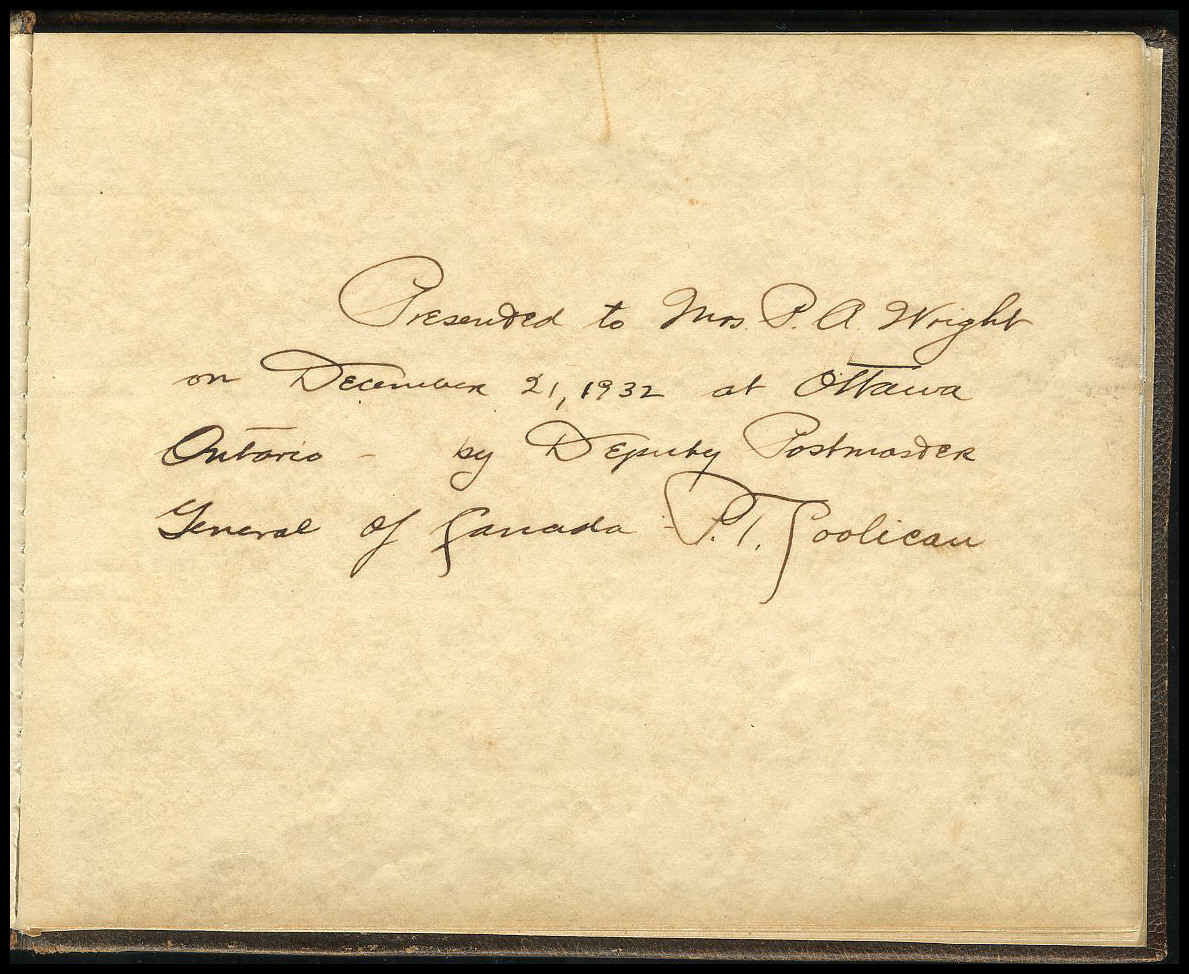 Presented to Mrs. P. A. Wright
on December 21, 1932 at Ottawa
Ontario - by Deputy Postmaster
General of Canada - P.T. Coolican